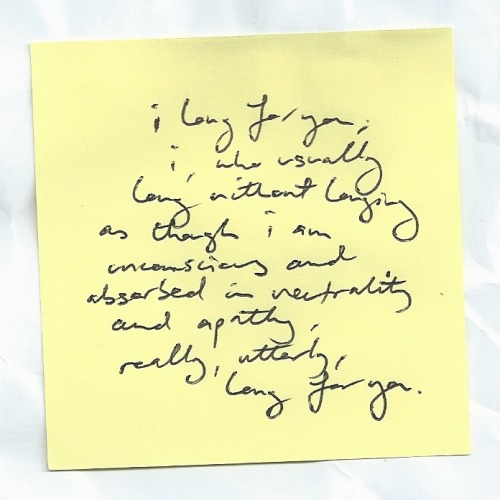 i long for you;
i, who usually
long without longing
as though i am
unconscious and
absorbed in neutrality
and apathy,
really, utterly,
long for you.